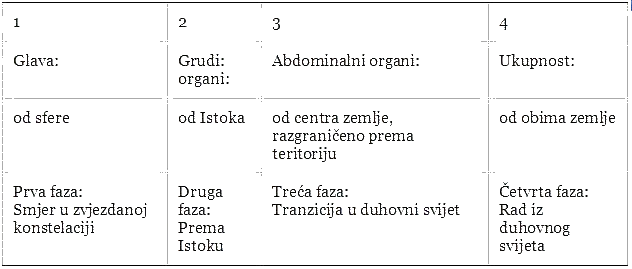 1
2
3
4
Glava:
Grudi
organi:
Abdominalni organi:
Ukupnost:
od sfere
od Istoka
od centra zemlje,
razgraničeno prema
teritoriju
od obima zemlje
Prva faza:
Smjer u zvjezdanoj
konstelaciji
Druga
faza:
Prema
Istoku
Treća faza:
Tranzicija u duhovni svijet
Četvrta faza:
Rad iz
duhovnog
svijeta